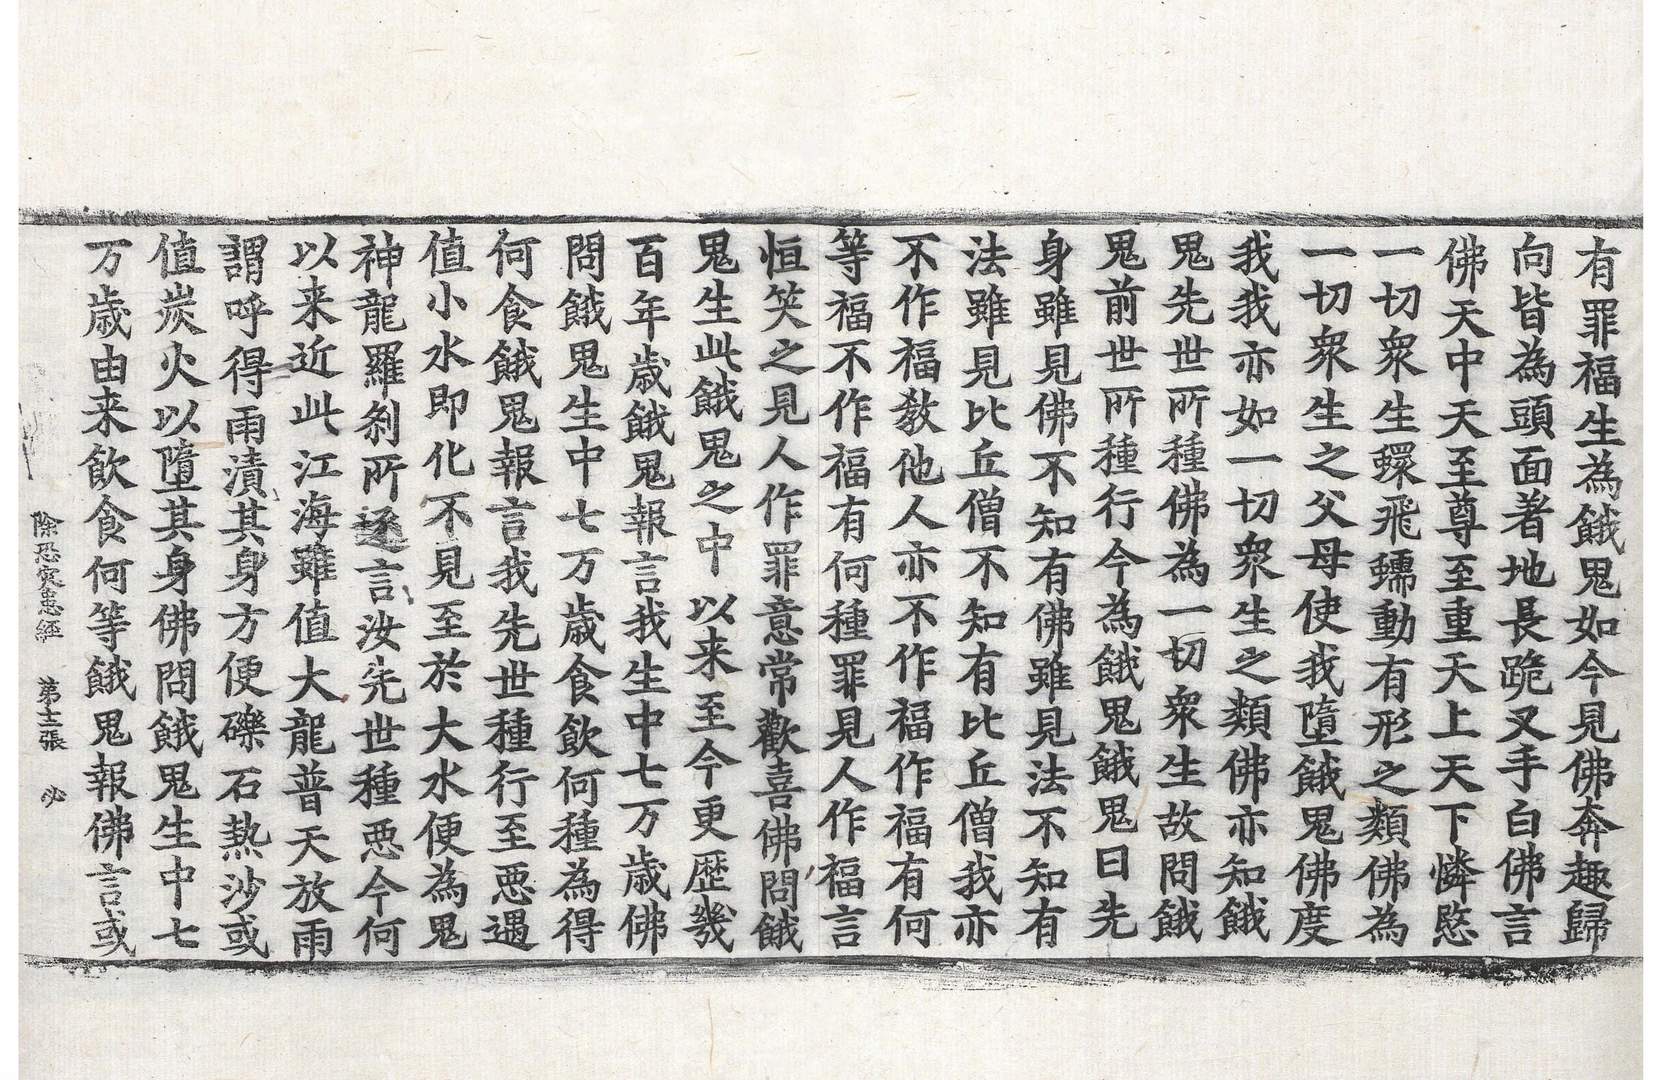 有罪福生為餓鬼如今見佛奔趣歸
向皆為頭面著地長跪叉手白佛言
佛天中天至尊至重天上天下憐愍
一切衆生蠉飛蠕動有形之類佛為
一切衆生之父母使我墮餓鬼佛度
我我亦如一切衆生之類佛亦知餓
鬼先世所種佛為一切衆生故問餓
鬼前世所種行今為餓鬼餓鬼曰先
身雖見佛不知有佛雖見法不知有
法雖見比丘僧不知有比丘僧我亦
不作福教他人亦不作福作福有何
等福不作福有何種罪見人作福言
恒笑之見人作罪意常歡喜佛問餓
鬼生此餓鬼之中以来至今更歷幾
百年歲餓鬼報言我生中七万歲佛
問餓鬼生中七万歲食飲何種為得
何食餓鬼報言我先世種行至惡遇
值小水即化不見至於大水便為鬼
神龍羅剎所逐言汝先世種惡今何
以来近此江海雖值大龍普天放雨
謂呼得雨漬其身方便礫石熱沙或
值炭火以墮其身佛問餓鬼生中七
万歲由来飲食何等餓鬼報佛言或
除恐灾患經 第十二張 必